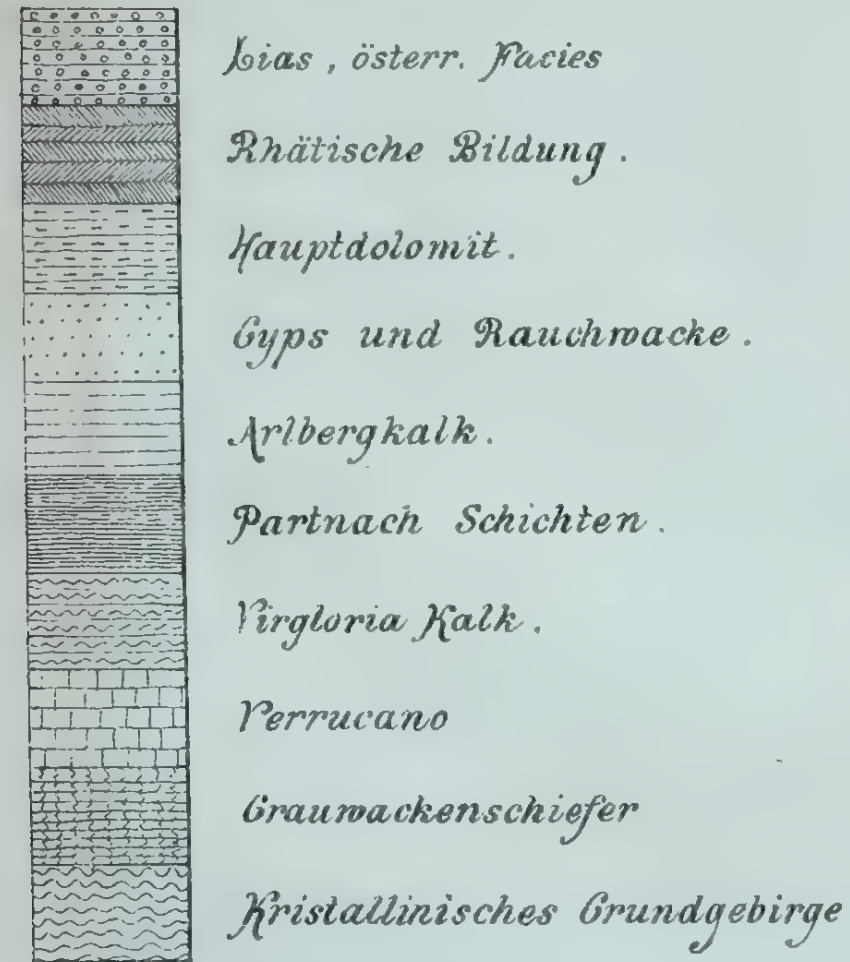 Lias , österr. Facies
Rhätische Bildung .
Hauptdolomit .
Gyps und Rauchwacke .
Arlbergkalk .
Partnach Schichten .
Virgloria Kalk .
Verrucano
Grauwackenschiefer
Kristallinisches Grundgebirge